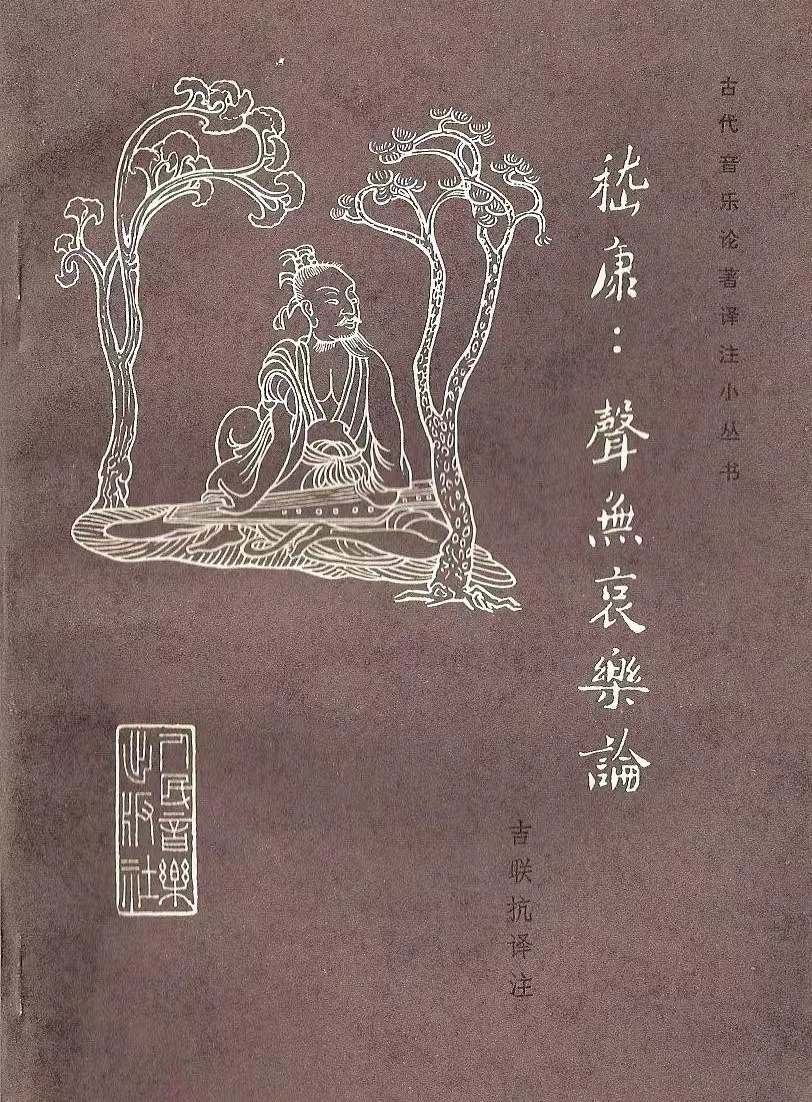 古代音乐论著译注小丛书
嵇康：聲無哀樂論
吉联抗译注
人民音樂
出版社